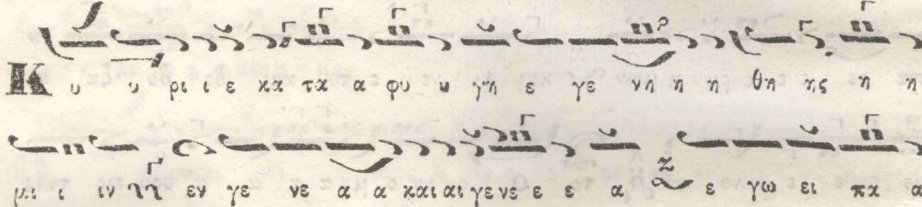 Κυ υ ρι ι ε κα τα α φυ υ γη ε γε νη η η θη ης η η
μι ι ιν εν γε νε α α και αι γε νε ε ε α ε γω ει πα α